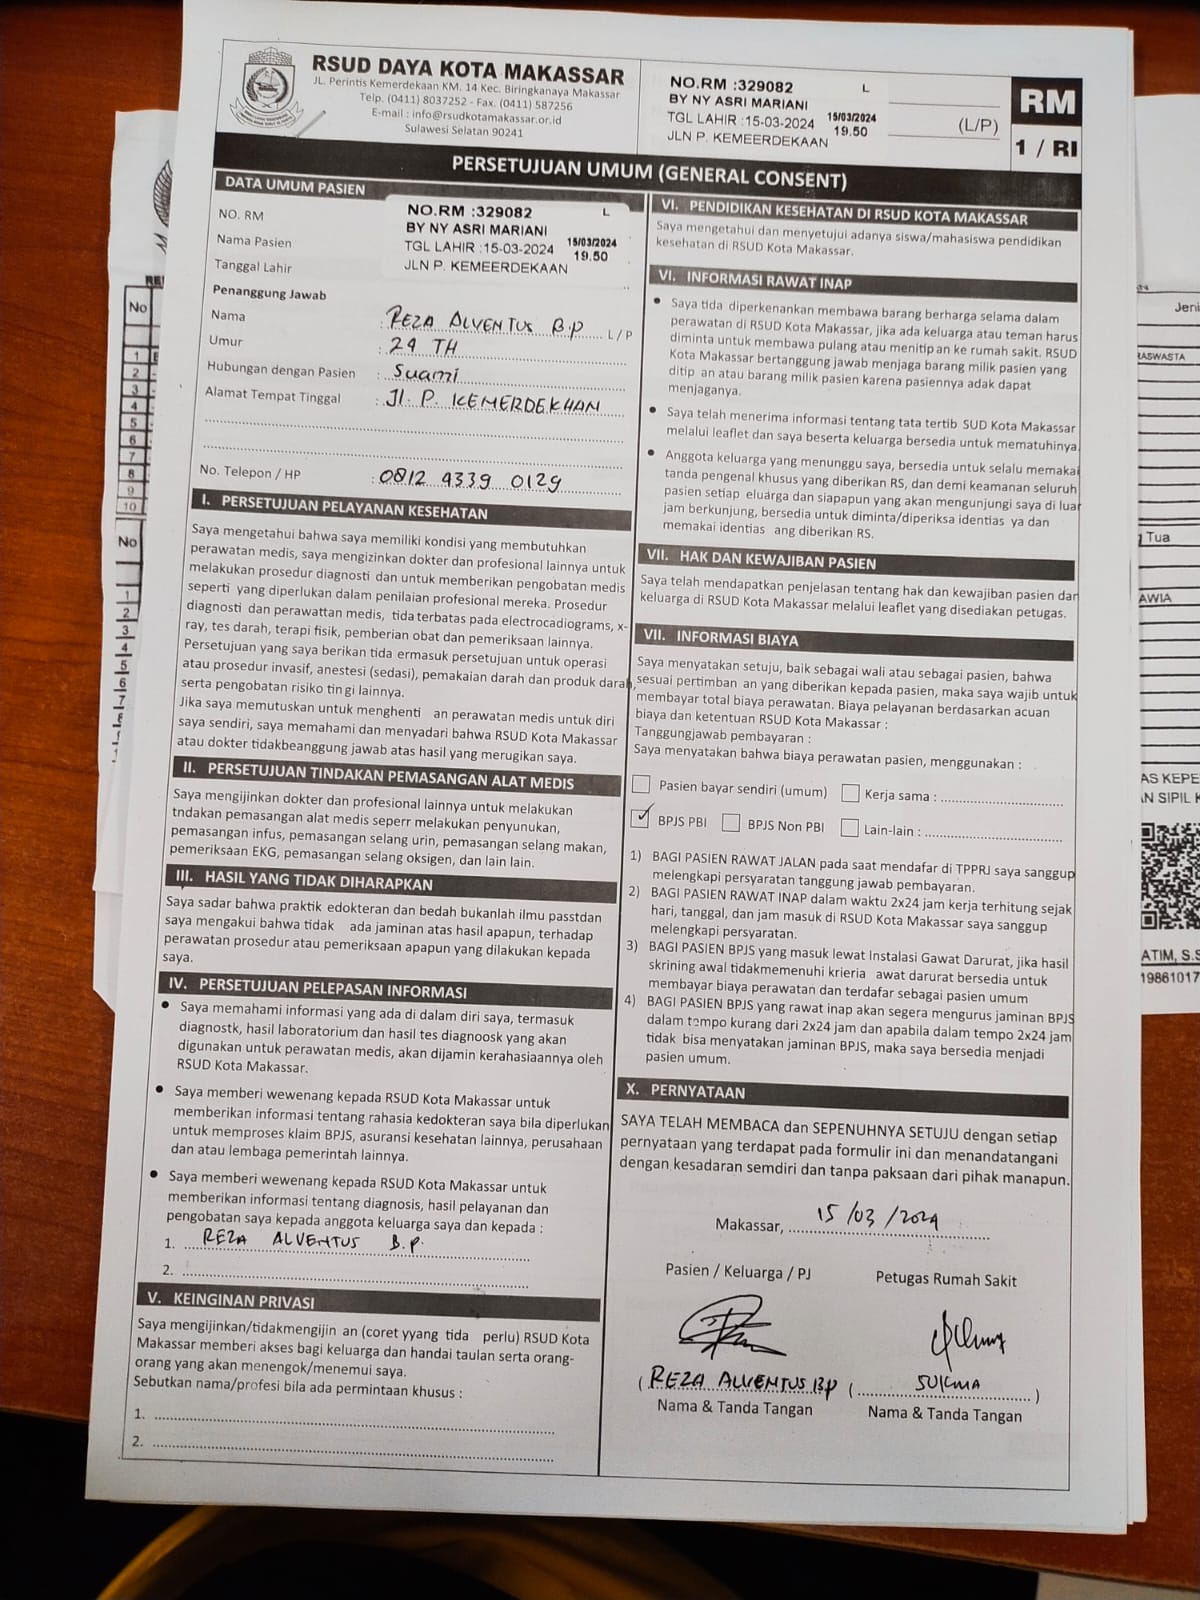 RSUD DAYA KOTA MAKASSAR
JL. Perintis Kemerdekaan KM. 14 Kec. Biringkanaya Makassar
Telp. (0411) 8037252 - Fax. (0411) 587256
E-mail : info@rsudkotamakassar.or.id
Sulawesi Selatan 90241
NO.RM :329082 L
BY NY ASRI MARIANI
TGL LAHIR :15-03-2024 15/03/2024 19.50
JLN P. KEMEERDEKAAN
(L/P)
RM
1 / RI
PERSETUJUAN UMUM (GENERAL CONSENT)
DATA UMUM PASIEN
NO. RM
Nama Pasien
Tanggal Lahir
NO.RM :329082 L
BY NY ASRI MARIANI
TGL LAHIR :15-03-2024 15/03/2024 19.50
JLN P. KEMEERDEKAAN
Penanggung Jawab
Nama : REZA ALVENTUS B.P L/P
Umur : 29 TH
Hubungan dengan Pasien : Suami
Alamat Tempat Tinggal : Jl. P. KEMERDEKAAN
No. Telepon / HP : 0812 4339 0129
I. PERSETUJUAN PELAYANAN KESEHATAN
Saya mengetahui bahwa saya memiliki kondisi yang membutuhkan
perawatan medis, saya mengizinkan dokter dan profesional lainnya untuk
melakukan prosedur diagnosti dan untuk memberikan pengobatan medis
seperti yang diperlukan dalam penilaian profesional mereka. Prosedur
diagnosti dan perawattan medis, tida terbatas pada electrocadiograms, x-
ray, tes darah, terapi fisik, pemberian obat dan pemeriksaan lainnya.
Persetujuan yang saya berikan tida ermasuk persetujuan untuk operasi
atau prosedur invasif, anestesi (sedasi), pemakaian darah dan produk darah,
serta pengobatan risiko tin gi lainnya.
Jika saya memutuskan untuk menghenti an perawatan medis untuk diri
saya sendiri, saya memahami dan menyadari bahwa RSUD Kota Makassar
atau dokter tidakbeanggung jawab atas hasil yang merugikan saya.
II. PERSETUJUAN TINDAKAN PEMASANGAN ALAT MEDIS
Saya mengijinkan dokter dan profesional lainnya untuk melakukan
tndakan pemasangan alat medis seperr melakukan penyunukan,
pemasangan infus, pemasangan selang urin, pemasangan selang makan,
pemeriksaan EKG, pemasangan selang oksigen, dan lain lain.
III. HASIL YANG TIDAK DIHARAPKAN
Saya sadar bahwa praktik edokteran dan bedah bukanlah ilmu passtdan
saya mengakui bahwa tidak ada jaminan atas hasil apapun, terhadap
perawatan prosedur atau pemeriksaan apapun yang dilakukan kepada
saya.
IV. PERSETUJUAN PELEPASAN INFORMASI
• Saya memahami informasi yang ada di dalam diri saya, termasuk
diagnostk, hasil laboratorium dan hasil tes diagnoosk yang akan
digunakan untuk perawatan medis, akan dijamin kerahasiaannya oleh
RSUD Kota Makassar.
• Saya memberi wewenang kepada RSUD Kota Makassar untuk
memberikan informasi tentang rahasia kedokteran saya bila diperlukan
untuk memproses klaim BPJS, asuransi kesehatan lainnya, perusahaan
dan atau lembaga pemerintah lainnya.
• Saya memberi wewenang kepada RSUD Kota Makassar untuk
memberikan informasi tentang diagnosis, hasil pelayanan dan
pengobatan saya kepada anggota keluarga saya dan kepada :
1. REZA ALVENTUS B.P.
2.
V. KEINGINAN PRIVASI
Saya mengijinkan/tidakmengijin an (coret yyang tida perlu) RSUD Kota
Makassar memberi akses bagi keluarga dan handai taulan serta orang-
orang yang akan menengok/menemui saya.
Sebutkan nama/profesi bila ada permintaan khusus :
1.
2.
VI. PENDIDIKAN KESEHATAN DI RSUD KOTA MAKASSAR
Saya mengetahui dan menyetujui adanya siswa/mahasiswa pendidikan
kesehatan di RSUD Kota Makassar.
VI. INFORMASI RAWAT INAP
• Saya tida diperkenankan membawa barang berharga selama dalam
perawatan di RSUD Kota Makassar, jika ada keluarga atau teman harus
diminta untuk membawa pulang atau menitip an ke rumah sakit. RSUD
Kota Makassar bertanggung jawab menjaga barang milik pasien yang
ditip an atau barang milik pasien karena pasiennya adak dapat
menjaganya.
• Saya telah menerima informasi tentang tata tertib SUD Kota Makassar
melalui leaflet dan saya beserta keluarga bersedia untuk mematuhinya.
• Anggota keluarga yang menunggu saya, bersedia untuk selalu memakai
tanda pengenal khusus yang diberikan RS, dan demi keamanan seluruh
pasien setiap eluarga dan siapapun yang akan mengunjungi saya di luar
jam berkunjung, bersedia untuk diminta/diperiksa identias ya dan
memakai identias ang diberikan RS.
VII. HAK DAN KEWAJIBAN PASIEN
Saya telah mendapatkan penjelasan tentang hak dan kewajiban pasien dan
keluarga di RSUD Kota Makassar melalui leaflet yang disediakan petugas.
VII. INFORMASI BIAYA
Saya menyatakan setuju, baik sebagai wali atau sebagai pasien, bahwa
sesuai pertimban an yang diberikan kepada pasien, maka saya wajib untuk
membayar total biaya perawatan. Biaya pelayanan berdasarkan acuan
biaya dan ketentuan RSUD Kota Makassar :
Tanggungjawab pembayaran :
Saya menyatakan bahwa biaya perawatan pasien, menggunakan :
Pasien bayar sendiri (umum) Kerja sama :
✓ BPJS PBI BPJS Non PBI Lain-lain :
1) BAGI PASIEN RAWAT JALAN pada saat mendafar di TPPRJ saya sanggup
melengkapi persyaratan tanggung jawab pembayaran.
2) BAGI PASIEN RAWAT INAP dalam waktu 2x24 jam kerja terhitung sejak
hari, tanggal, dan jam masuk di RSUD Kota Makassar saya sanggup
melengkapi persyaratan.
3) BAGI PASIEN BPJS yang masuk lewat Instalasi Gawat Darurat, jika hasil
skrining awal tidakmemenuhi krieria awat darurat bersedia untuk
membayar biaya perawatan dan terdafar sebagai pasien umum
4) BAGI PASIEN BPJS yang rawat inap akan segera mengurus jaminan BPJS
dalam tempo kurang dari 2x24 jam dan apabila dalam tempo 2x24 jam
tidak bisa menyatakan jaminan BPJS, maka saya bersedia menjadi
pasien umum.
X. PERNYATAAN
SAYA TELAH MEMBACA dan SEPENUHNYA SETUJU dengan setiap
pernyataan yang terdapat pada formulir ini dan menandatangani
dengan kesadaran semdiri dan tanpa paksaan dari pihak manapun.
Makassar, 15/03/2024
Pasien / Keluarga / PJ Petugas Rumah Sakit
( REZA ALVENTUS BP ( SUKMA )
Nama & Tanda Tangan Nama & Tanda Tangan
No
1
2
3
4
5
6
7
8
9
10
No
1
2
3
4
5
6
7
Jeni
RASWASTA
Tua
AWIA
AS KEPE
AN SIPIL K
ATIM, S.S
19861017